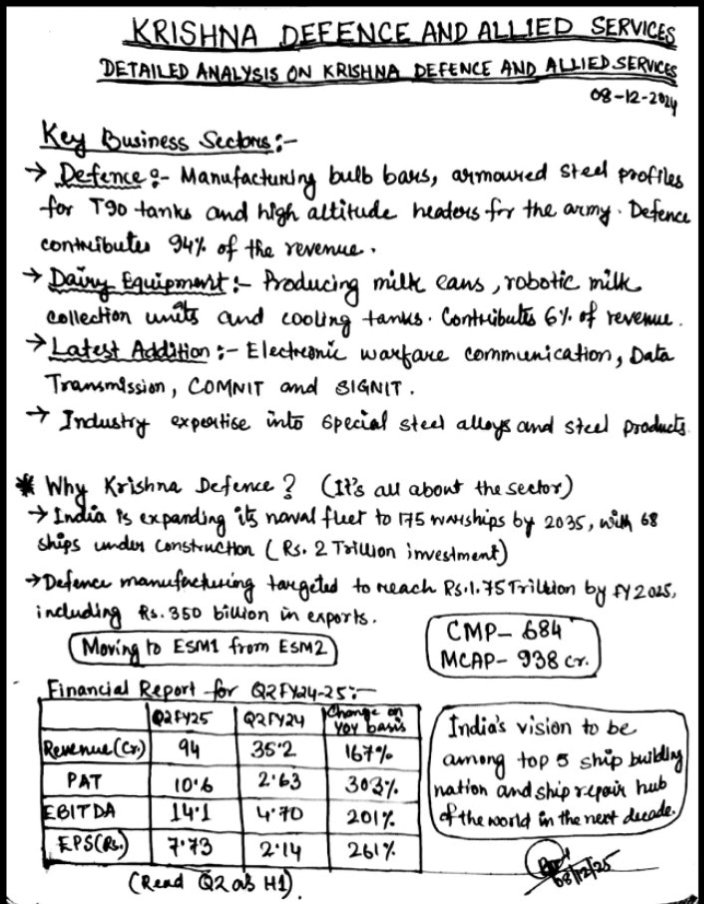 KRISHNA DEFENCE AND ALLIED SERVICES
DETAILED ANALYSIS ON KRISHNA DEFENCE AND ALLIED SERVICES
08-12-2024
Key Business Sectors:-
→ Defence:- Manufacturing bulb bars, armoured steel profiles
for T90 tanks and high altitude heaters for the army. Defence
contributes 94% of the revenue.
→ Dairy Equipment:- Producing milk cans, robotic milk
collection units and cooling tanks. Contributes 6% of revenue.
→ Latest Addition:- Electronic warfare communication, Data
Transmission, COMNIT and SIGNIT.
→ Industry expertise into special steel alloys and steel products
* Why Krishna Defence? (It's all about the sector)
→ India is expanding its naval fleet to 175 warships by 2035, with 68
ships under construction (Rs. 2 Trillion investment)
→ Defence manufacturing targeted to reach Rs.1.75 Trillion by FY 2025,
including Rs. 350 billion in exports.
Moving to ESM1 from ESM2
CMP- 684
MCAP- 938 cr.
Financial Report for Q2FY24-25:-
Q2FY25 Q2FY24 Change on YOY basis
Revenue(Cr.) 94 35.2 167%
PAT 10.6 2.63 303%
EBITDA 14.1 4.70 201%
EPS(Rs.) 7.73 2.14 261%
(Read Q2 as H1)
India's vision to be
among top 5 ship building
nation and ship repair hub
of the world in the next decade.
08/12/25